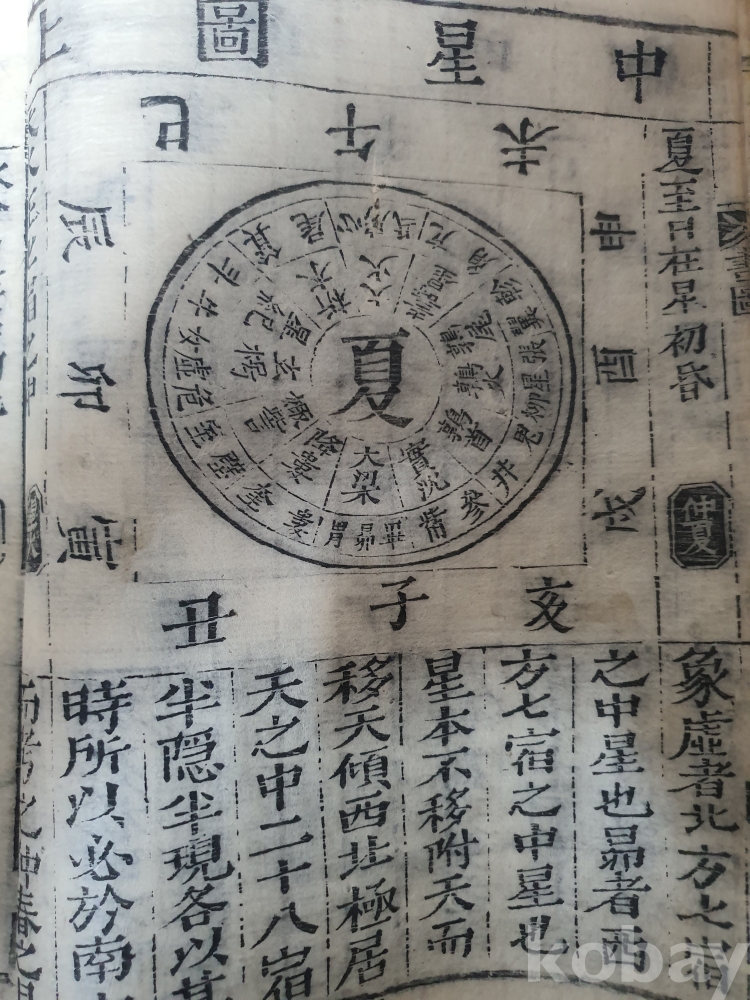 中星圖
夏至日在星初昏
仲夏
未午巳
申酉戌
辰卯寅
亥子丑
夏
鶉尾
鶉火
鶉首
實沈
大梁
降婁
玄枵
星紀
析木
大火
角亢氐房心尾箕
斗牛女虛危室壁
奎婁胃昴畢觜參
井鬼柳星張翼軫
象虛者北方七宿
之中星也昴者西
方七宿之中星也
星本不移附天而
移天傾西北極居
天之中二十八宿
半隱半現各以其
時所以必於南方
kobay